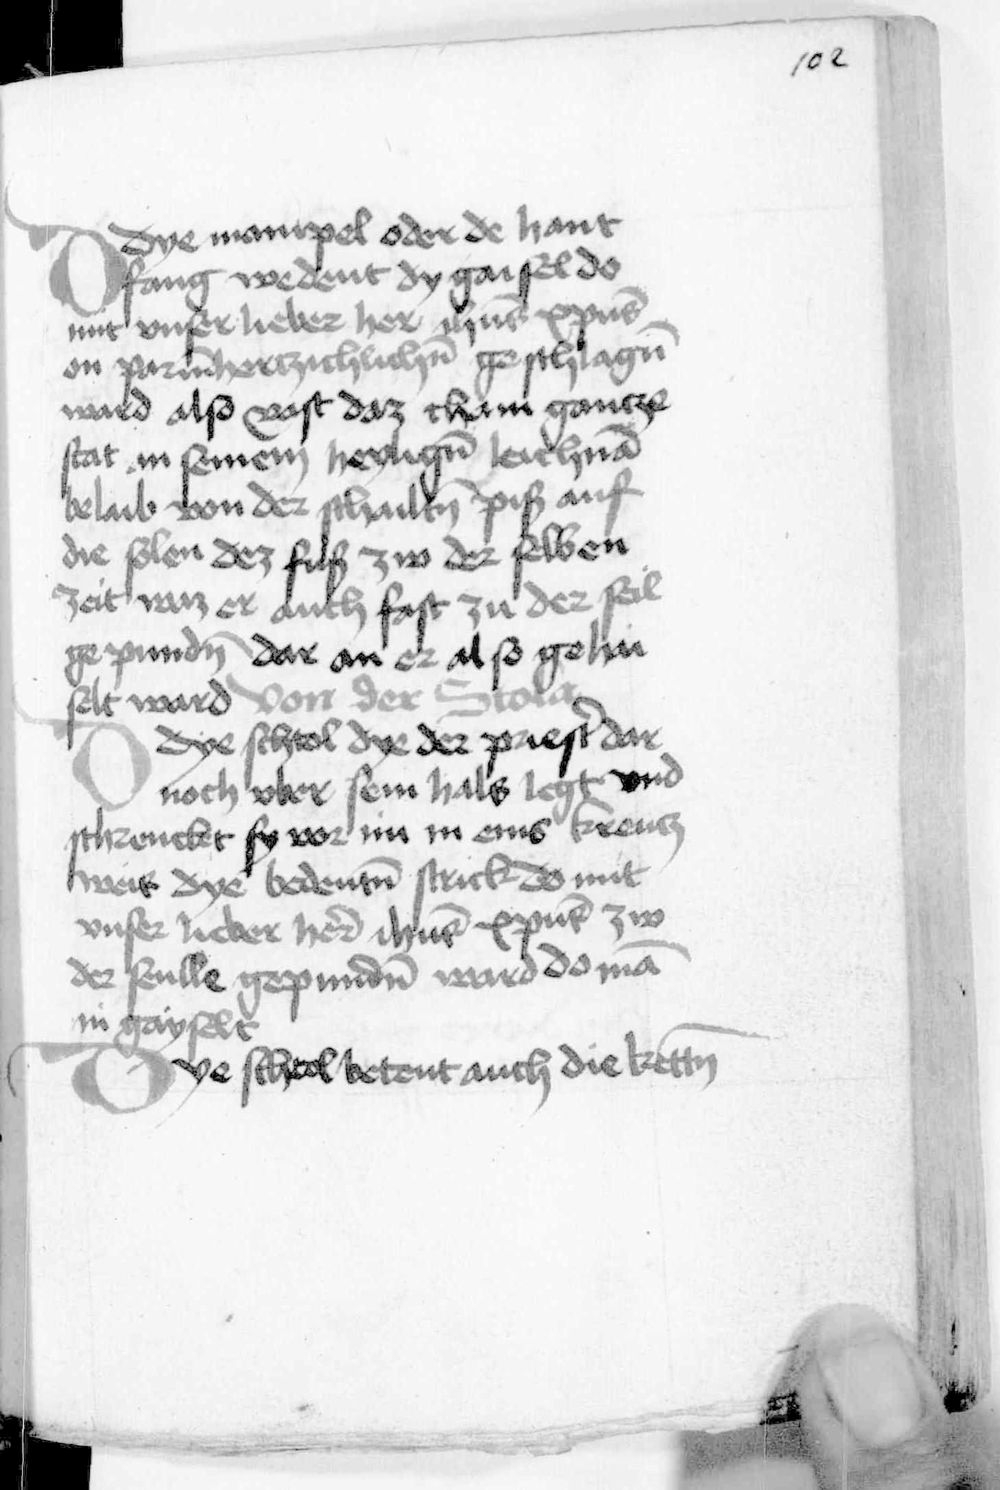 102
Dye manipel oder de hant
fang wedeut dy gaisel do
mit vnser lieber her ihus xpus
on parmhertzichlichn̄ geschlagn̄
ward also vast daz chain gantze
stat in seinem heylign̄ leichnā
belaib von der schailtn̄ piß auf
die solen dez fuß zw der selben
zeit waz er auch fast zu der seil
ge pundn̄ dar an er also gehai
selt ward Von der Stola
Dye schtol dye der priestr̄ dar
noch vber sein hals legt vnd
schrencket sy vor im in eins kreutz
weis dye bedeutn̄ strick do mit
vnser lieber her̄ ihus xpus zw
der seulle gepundn̄ ward do mā
in gayselt
Dye schtol beteut auch die kettn̄